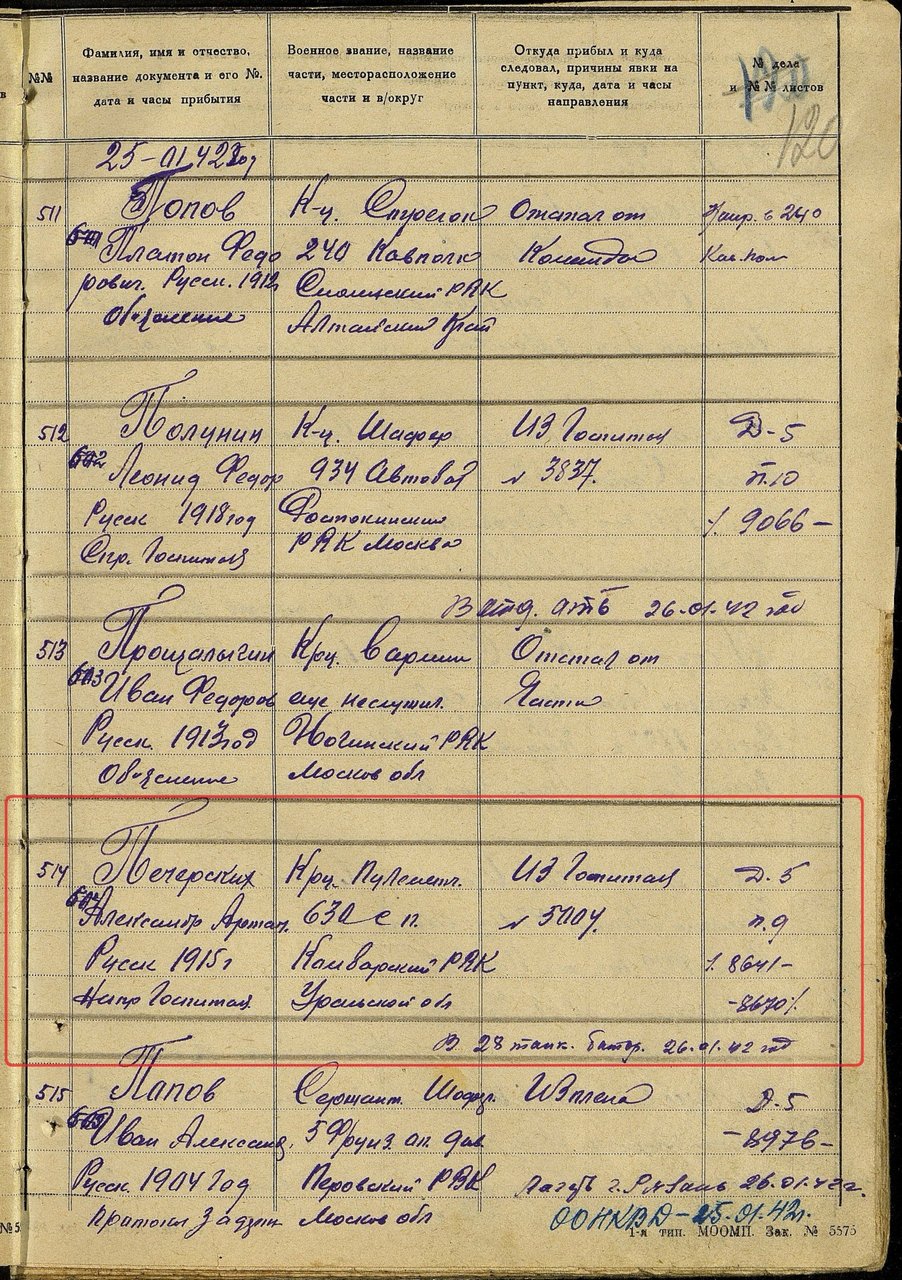 №№
Фамилия, имя и отчество, название документа и его №. дата и часы прибытия
Военное звание, название части, месторасположение части и в/округ
Откуда прибыл и куда следовал, причины явки на пункт, куда, дата и часы направления
№ дела и №№ листов
120
25-01-42 год
511 Попов К-ц. Стрелок Отстал от Напр. в 240
Платон Федо 240 Кавполк Команды Кав.пол
рович. Русск. 1912 РВК
Объяснение Алтайский Край
512 Полунин К-ц. Шофер Из Госпиталя Д-5
Леонид Федор 934 Автобат № 3837. п.10
Русск 1918 год Ростокинский 9066-
Спр. Госпиталя РВК Москва
26.01.42 год
513 Прощалыгин Крц. Отстал от
Иван Федоров еще не служил. Части
Русск. 1913 год Ногинский РВК
Объяснение Москов обл
514 Печерских Крц. Пулеметч. Из Госпиталя Д.5
Александр Артам. 630 с п. № 5004. п.9
Русск 1915 г РВК 8641-
Напр Госпиталя Уральской обл -8670%
В 28 танк. батар. 26.01.42 год
515 Папов Сержант. Шофер Из плена Д.5
Иван Александ. 5 Фрунз. оп. див -8976-
Русск. 1904 год Перовский РВК Лагерь г. Рязань 26.01.42 г.
Москов обл ООНКВД - 25.01.42г.
1-я тип. МООМП. Зак. № 5575